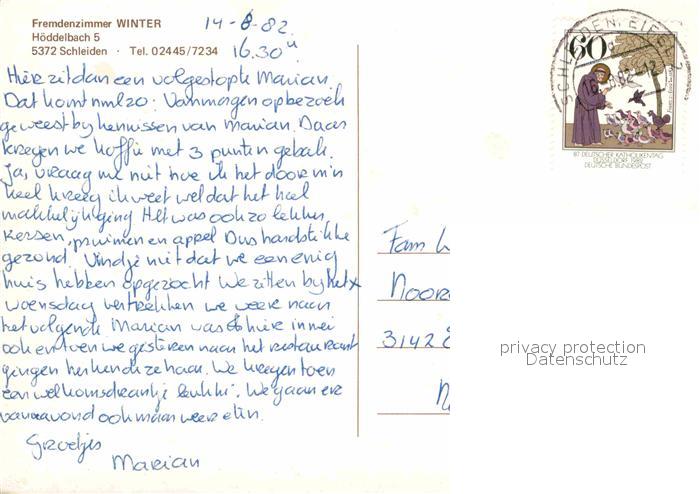 Fremdenzimmer WINTER
Höddelbach 5
5372 Schleiden · Tel. 02445/7234
14-8-82
16.30 u
Hier zit dan een volgestopte Marian.
Dat komt nml zo: Vanmorgen op bezoek
geweest by kennissen van Marian. Daar
kregen we koffie met 3 punten gebak.
Ja, vraag me niet hoe ik het door m'n
keel kreeg ik weet wel dat het heel
makkelijk ging Het was ook zo lekker,
kersen, pruimen en appel Dus hardstikke
gezond. Vind je niet dat we een enig
huis hebben opgezocht We zitten by het x
woensdag vertrekken we weer naar
het volgende Marian was hier in mei
ook en toen we gisteren naar het restaurant
gingen herkende ze haar. We kregen toen
een welkomsdrankje leuk hè. We gaan er
vanavond ook maar weer eten.
Groetjes
Marian
Fam
Noor
3142
SCHLEIDEN, EIFEL 2
60
87. DEUTSCHER KATHOLIKENTAG
DÜSSELDORF 1982
DEUTSCHE BUNDESPOST
privacy protection
Datenschutz